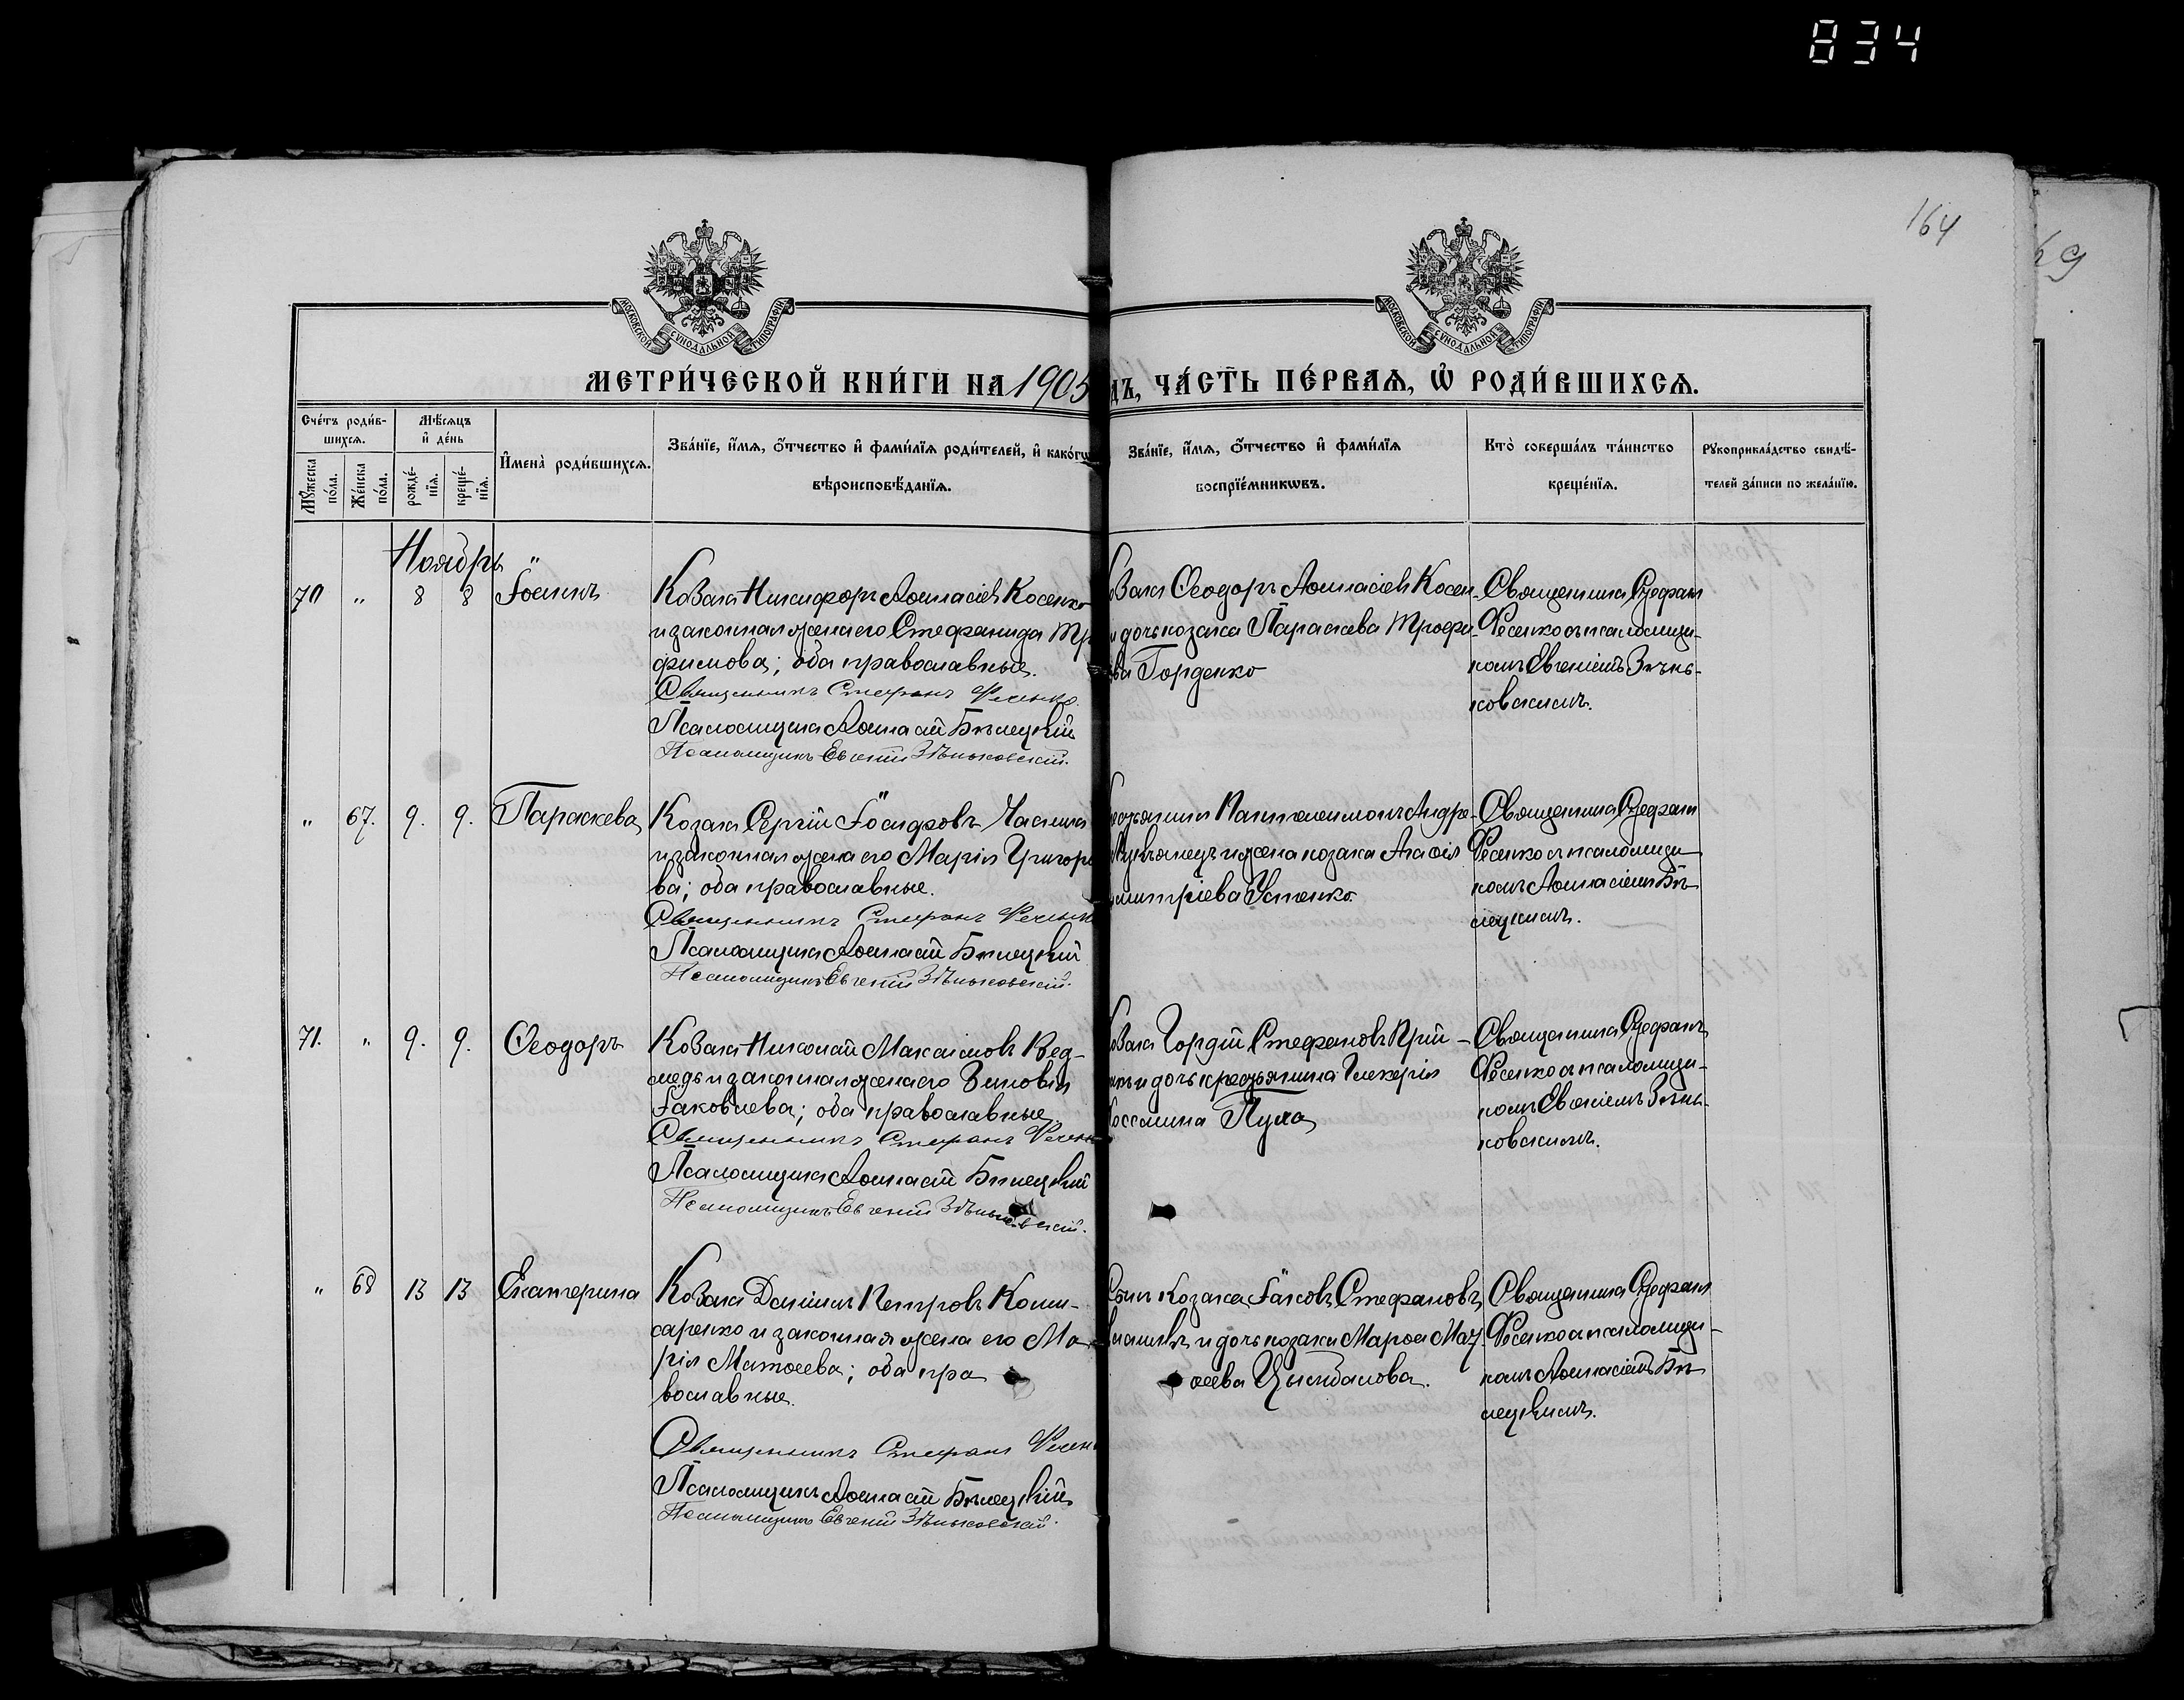 834
164
69
МОСКОВСКОЙ СѴНОДАЛЬНОЙ ТИПОГРАФІИ
МОСКОВСКОЙ СѴНОДАЛЬНОЙ ТИПОГРАФІИ
МЕТРИ́ЧЕСКОЙ КНИ́ГИ НА 1905
ДЪ, ЧА́СТЬ ПЕ́РВАЯ, Ѡ҆ РОДИ́ВШИХСЯ.
Сче́тъ роди́в-
шихся.
Мѣ́сяцъ
и҆ де́нь
Мꙋ́жеска
по́ла.
Же́нска
по́ла.
рожде́-
нїя.
креще́-
нїя.
И҆мена̀ роди́вшихся.
Зва́нїе, и҆́мя, ѻ҆́тчество и҆ фами́лїя роди́телей, и҆ како́гѡ
вѣроисповѣ́данїя.
Зва́нїе, и҆́мя, ѻ҆́тчество и҆ фами́лїя
воспрїе́мникѡвъ.
Кто̀ соверша́лъ та́инство
креще́нїя.
Рꙋкоприкла́дство свидѣ́-
телей за́писи по жела́нїю.
Ноябрь
70 " 8 8 Іоаннъ
Козакъ Никифоръ Аѳанасіевъ Косенко
и законная жена его Стефанида Тро
фимова; оба православные.
Священникъ Стефанъ Фесенко.
Псаломщикъ Аѳанасій Бѣлецкій
Псаломщикъ Евгеній Зѣньковскій.
озакъ Ѳеодоръ Аѳанасіевъ Косен-
и дочь козака Параскева Трофи-
ва Горденко
Священникъ Стефанъ
Фесенко съ псаломщи-
комъ Евгеніемъ Зѣнь-
ковскимъ.
" 67. 9. 9. Параскева
Козакъ Сергій Іосифовъ Часникъ
и законная жена его Марія Григорь
ва; оба православные.
Священникъ Стефанъ Фесенк
Псаломщикъ Аѳанасій Бѣлецкій
Псаломщикъ Евгеній Зѣньковскій.
Пантелеимонъ Андре-
и жена козака Агаѳія
митріева Усенко.
Священникъ Стефанъ
Фесенко съ псаломщи-
комъ Аѳанасіемъ Бѣ-
лецкимъ.
71. " 9. 9. Ѳеодоръ
Козакъ Николай Максимовъ Вед-
медь и законная жена его Зиновія
Іаковлева; оба православные
Священникъ Стефанъ Фесен
Псаломщикъ Аѳанасій Бѣлецкій
Псаломщикъ Евгеній Зѣньковскій.
озакъ Гордій Стефановъ Прій-
и дочь крестьянина Гликерія
Пула
Священникъ Стефанъ
Фесенко съ псаломщи-
комъ Евгеніемъ Зѣнь-
ковскимъ.
" 68 13 13 Екатерина
Козакъ Даніилъ Петровъ Коми-
саренко и законная жена его Ма-
рія Матѳеева; оба пра
вославные.
Священникъ Стефанъ Фесен
Псаломщикъ Аѳанасій Бѣлецкій
Псаломщикъ Евгеній Зѣньковскій.
Сынъ козака Іаковъ Стефановъ
и дочь козака Марѳа Мат-
ѳеева Цымбалова.
Священникъ Стефанъ
Фесенко съ псаломщи-
комъ Аѳанасіемъ Бѣ-
лецкимъ.